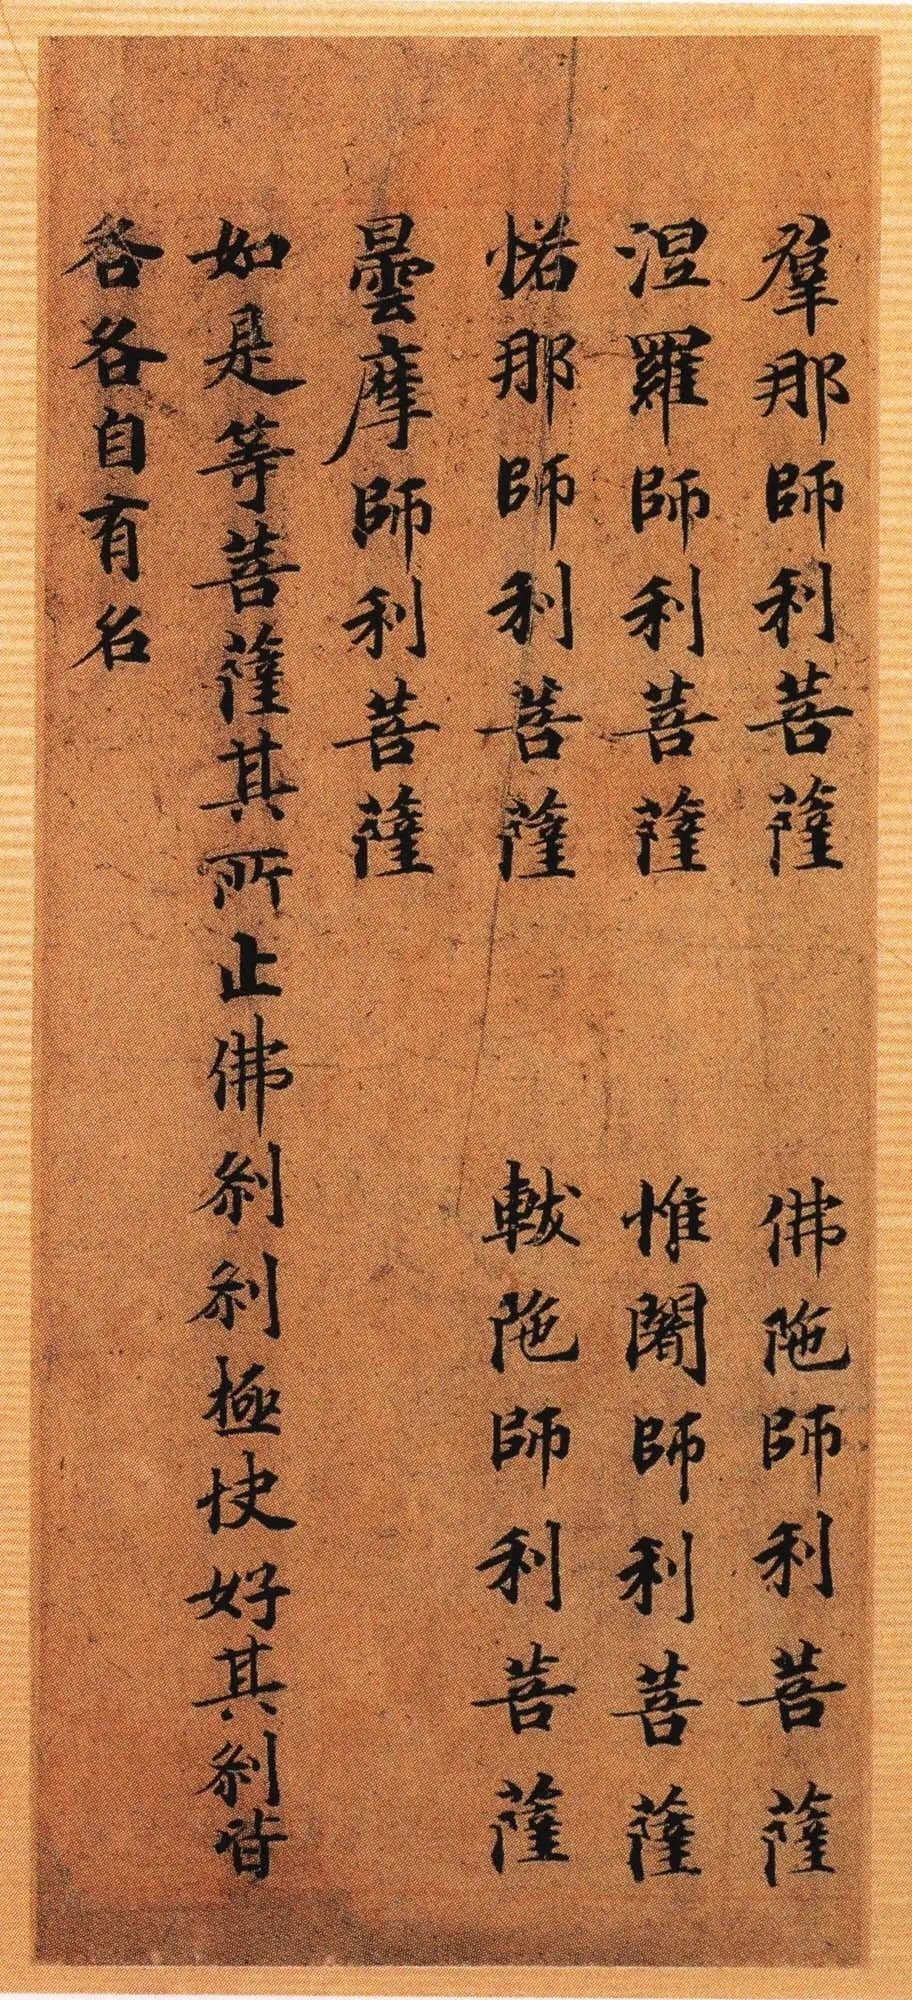 羣那師利菩薩　佛陁師利菩薩
涅羅師利菩薩　惟闍師利菩薩
惒那師利菩薩　軷陁師利菩薩
曇摩師利菩薩
如是等菩薩其所止佛刹刹極快好其刹皆
各各自有名